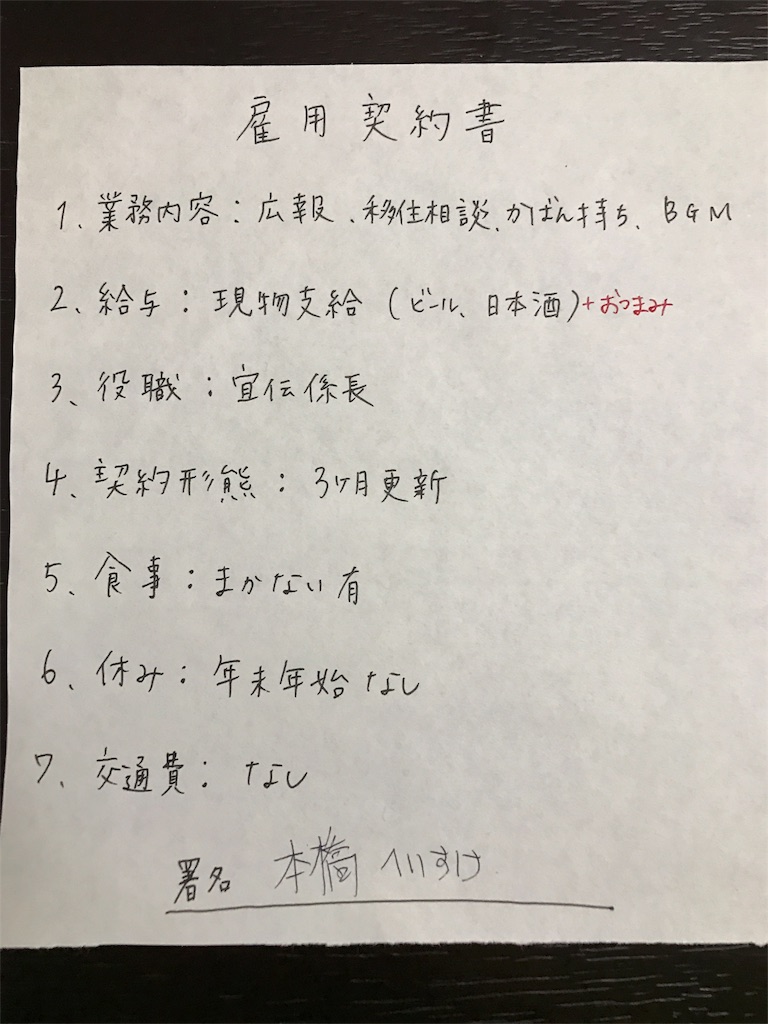 雇用契約書
1、業務内容：広報、移住相談、かばん持ち、BGM
2、給与：現物支給（ビール、日本酒）+おつまみ
3、役職：宣伝係長
4、契約形態：3ヶ月更新
5、食事：まかない有
6、休み：年末年始なし
7、交通費：なし
署名 本橋へいすけ